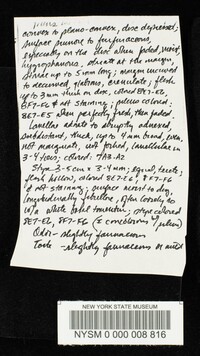 convex to plano-convex, disc depressed;
surface minute to furfuraceous,
especially on the disc when faded, moist,
hygrophanous, striate at the margin,
striae up to 5 mm long; margin incurved
to decurved, crenulate; flesh
up to 3 mm thick on disc, colored 8E7-E6,
8F7-F6 & not staining; pileus colored:
8E7-E5 when perfectly fresh, then faded
Lamellae adnate to abruptly adnexed,
subdistant, thick, up to 4 mm broad, even
not marginate, not forked, lamellulae in
3-4 tiers; colored: 7A3-A2
Stipe 3-5 cm x 3-4 mm; equal, terete,
flesh hollow, colored 8E7-E6, 8F7-F6
& not staining; surface moist to dry,
longitudinally fibrillose, often loosely so
w/ a white basal tomentum; stipe colored
8E7-E6, 8F7-F6 (= concolorous w/ pileus)
Odor - slightly farinaceous
Taste - slightly farinaceous or mild
NEW YORK STATE MUSEUM
NYSM 0 000 008 816